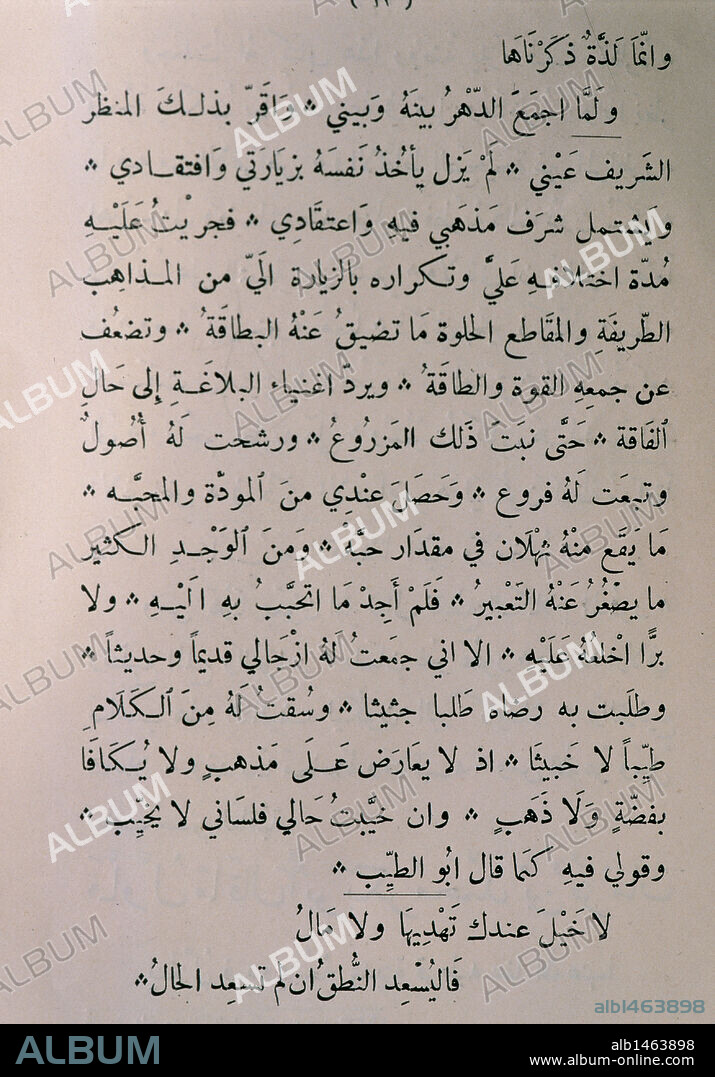 وانّمَا لَذَّةٌ ذَكَرْنَاهَا
وَلَمَّا اجمَعَ الدّهْرُ بينَهُ وَبيني ۞ وَاقَرّ بذلـكَ المنظر
الشَريف عَيْني ۞ لَمْ يَزل يأخُذُ نَفسَهُ بزيارَتي وَافتقـادي ۞
وَيشتمل شرَف مَذهَبي فيهِ وَاعتقَادِي ۞ فجريْتُ عَلَيْـهِ
مُدّة اختلافـهِ عَليَّ وتـكـراره بالزيارة الَيّ من المـذاهِب
الطّريفَةِ والمقَاطع الحلوة مَا تضيقُ عَنْهُ البطاقَةُ ۞ وتضعُف
عن جمعِهِ القوة والطاقَةُ ۞ ويردّ اغنياء البلاغَـةِ إلى حَالِ
الفَاقة ۞ حَتَّى نبَتَ ذَلك المَزرُوعُ ۞ ورشحت لَهُ أُصولٌ
وتبعَت لَهُ فروع ۞ وَحَصَلَ عنْدِي منَ المودّة والمحبَّـه ۞
مَا يَقَع منْهُ ثهْلَان في مقدَار حبَّةٌ ۞ وَمنَ الوَجْـدِ الـكثير
ما يصْغُرُ عَنْهُ التَعبيرُ ۞ فَلَمْ أَجِدْ مَا اتحَبَّبُ بهِ اليْـهِ ۞ ولا
برًّا اخْلعُهُ عَلَيْه ۞ الا اني جمَعتُ لهُ ازْجَالي قديماً وحديثاً ۞
وطلَبت به رضاه طَلبا حثيثا ۞ وسُقتُ لَهُ مِنَ الـكَلَامِ
طيِّباً لا خَبيثَا ۞ اذ لا يعَارَض عَـلَى مَذهبٍ ولا يُـكَافَا
بفضّةٍ وَلَا ذَهَبٍ ۞ وان خيَّبتُ حَالي فلسَاني لا يخيِّب ۞
وَقولي فيهِ كَمَا قال ابُو الطيّب ۞
لا خَيْلَ عندك تَهْدِيهَا ولا مَالُ
فَاليُسْعِد النُّطقُ ان لم تسعِد الحالُ ۞
ALBUM
alb1463898
alb1463898
www.album-online.com